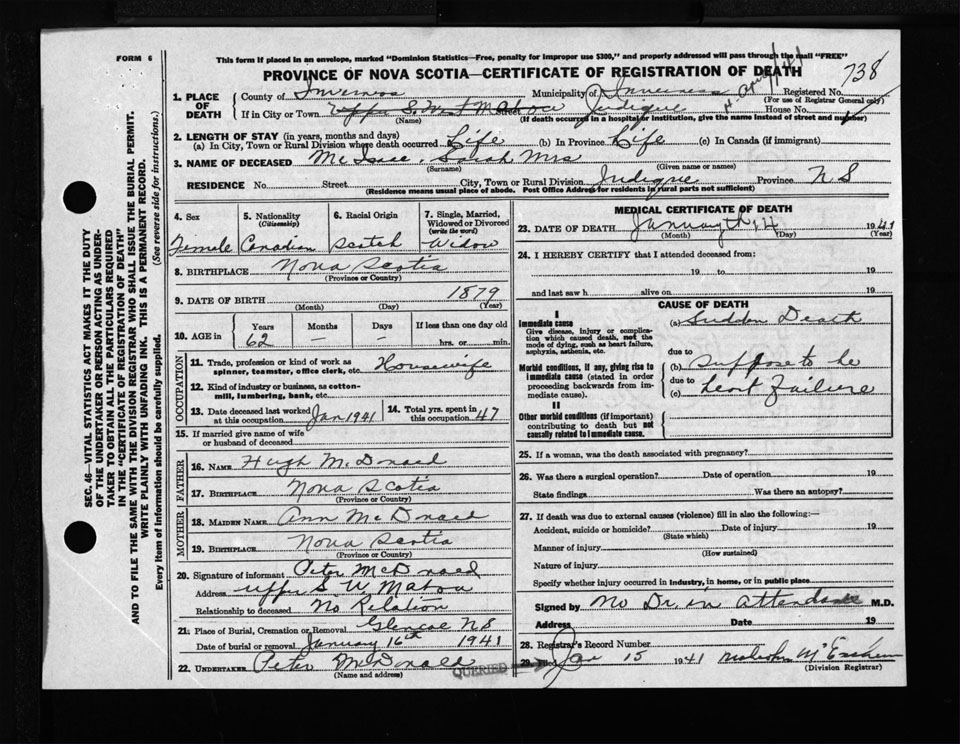 FORM 6
This form if placed in an envelope, marked "Dominion Statistics—Free, penalty for improper use $300," and properly addressed will pass through the mail "FREE"
PROVINCE OF NOVA SCOTIA—CERTIFICATE OF REGISTRATION OF DEATH
738
1. PLACE OF DEATH
County of Inverness Municipality of Inverness Registered No.
(For use of Registrar General only)
If in City or Town Upper S. W. Mabou Judique House No.
(Name) (If death occurred in a hospital or institution, give the name instead of street and number)
2. LENGTH OF STAY (in years, months and days)
(a) In City, Town or Rural Division where death occurred Life (b) In Province Life (c) In Canada (if immigrant)
3. NAME OF DECEASED McIsaac, Sarah Mrs
(Surname) (Given name or names)
RESIDENCE No. Street City, Town or Rural Division Judique Province N S
(Residence means usual place of abode. Post Office Address for residents in rural parts not sufficient)
SEC. 46—VITAL STATISTICS ACT MAKES IT THE DUTY
OF THE UNDERTAKER OR PERSON ACTING AS UNDER-
TAKER TO OBTAIN ALL THE PARTICULARS REQUIRED
IN THE "CERTIFICATE OF REGISTRATION OF DEATH"
AND TO FILE THE SAME WITH THE DIVISION REGISTRAR WHO SHALL ISSUE THE BURIAL PERMIT.
WRITE PLAINLY WITH UNFADING INK. THIS IS A PERMANENT RECORD.
Every item of information should be carefully supplied. (See reverse side for instructions.)
4. Sex
Female
5. Nationality
(Citizenship)
Canadian
6. Racial Origin
Scotch
7. Single, Married,
Widowed or Divorced
(write the word)
Widow
8. BIRTHPLACE Nova Scotia
(Province or Country)
9. DATE OF BIRTH 1879
(Month) (Day) (Year)
10. AGE in Years Months Days If less than one day old
62 — — hrs. or min.
OCCUPATION
11. Trade, profession or kind of work as
spinner, teamster, office clerk, etc. Housewife
12. Kind of industry or business, as cotton-
mill, lumbering, bank, etc.
13. Date deceased last worked
at this occupation Jan 1941
14. Total yrs. spent in
this occupation 47
15. If married give name of wife
or husband of deceased
FATHER
16. NAME Hugh McDonald
17. BIRTHPLACE Nova Scotia
(Province or Country)
MOTHER
18. MAIDEN NAME Ann McDonald
19. BIRTHPLACE Nova Scotia
(Province or Country)
20. Signature of informant Peter McDonald
Address Upper S. W. Mabou
Relationship to deceased No Relation
21. Place of Burial, Cremation or Removal Glencoe N S
Date of burial or removal January 16th 1941
22. UNDERTAKER Peter McDonald
(Name and address)
QUERIED
MEDICAL CERTIFICATE OF DEATH
23. DATE OF DEATH January th 14 1941
(Month) (Day) (Year)
24. I HEREBY CERTIFY that I attended deceased from:
19 to 19
and last saw h alive on 19
CAUSE OF DEATH
I
Immediate cause
Give disease, injury or complica-
tion which caused death, not the
mode of dying, such as heart failure,
asphyxia, asthenia, etc.
(a) Sudden Death
due to
Morbid conditions, if any, giving rise to
immediate cause (stated in order
proceeding backwards from im-
mediate cause).
(b) Suppose to be
due to
(c) heart Failure
II
Other morbid conditions (if important)
contributing to death but not
causally related to immediate cause.
25. If a woman, was the death associated with pregnancy?
26. Was there a surgical operation? Date of operation 19
State findings Was there an autopsy?
27. If death was due to external causes (violence) fill in also the following:—
Accident, suicide or homicide? Date of injury 19
(State which)
Manner of injury
(How sustained)
Nature of injury
Specify whether injury occurred in industry, in home, or in public place
Signed by No Dr. in attendance M.D.
Address Date 19
28. Registrar's Record Number
29. Filed Jan 15 1941 Malcolm
(Division Registrar)